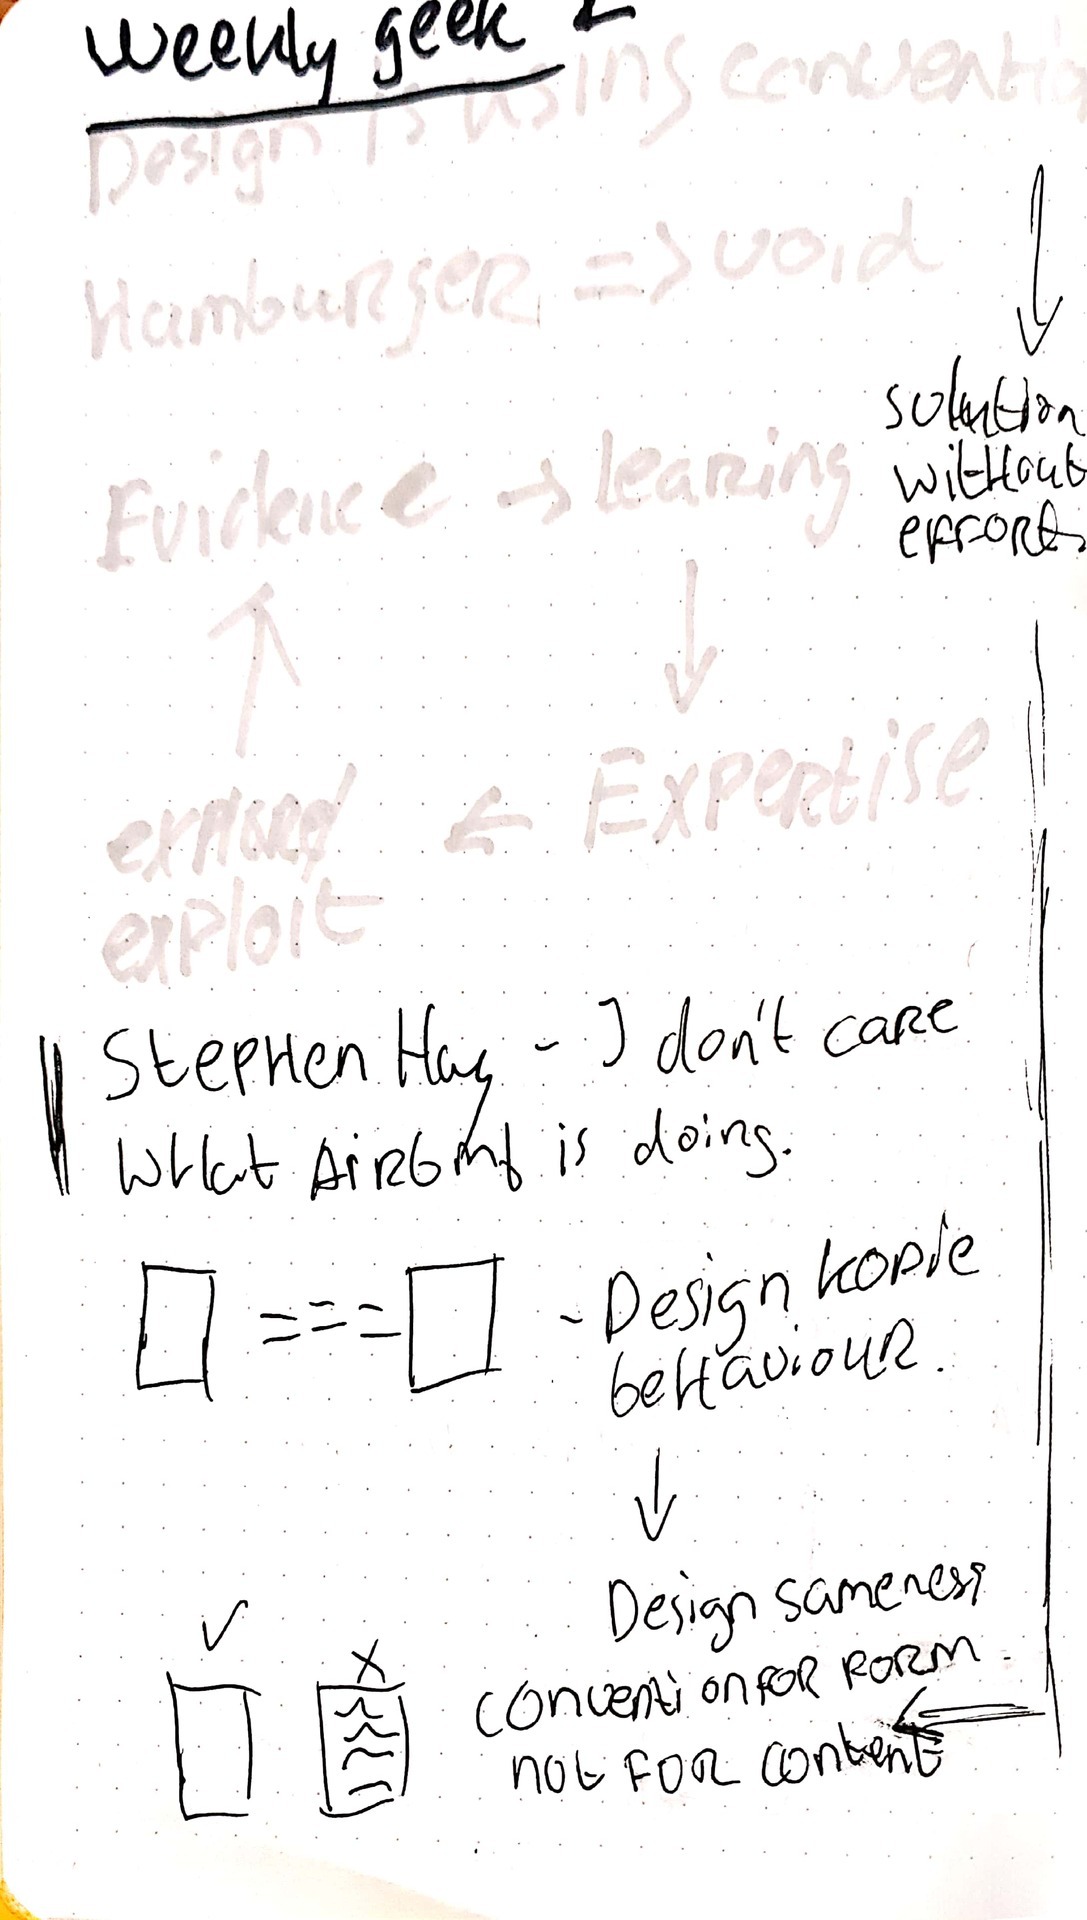 Weekly geek 2
Design is using conventio
Hamburger => void
solution
without
efforts
Evidence -> learing
Expertise
explore/
exploit
Stephen Hay - I don't care
what Airbnb is doing.
=== - Design kopie
behaviour.
Design sameness
convention for form.
not for content